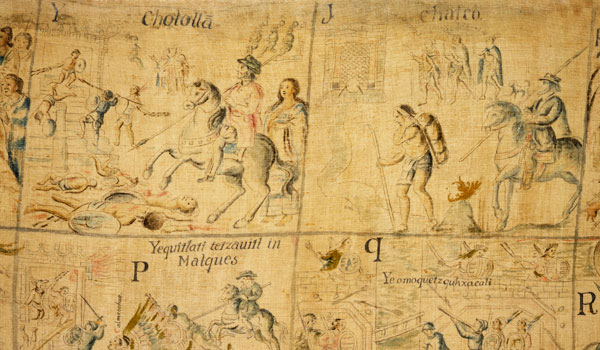 Y Chololla
J chalco
Yequittati tetzauitl in
Malques
P
q
Ye omoquetz quhxacali
R